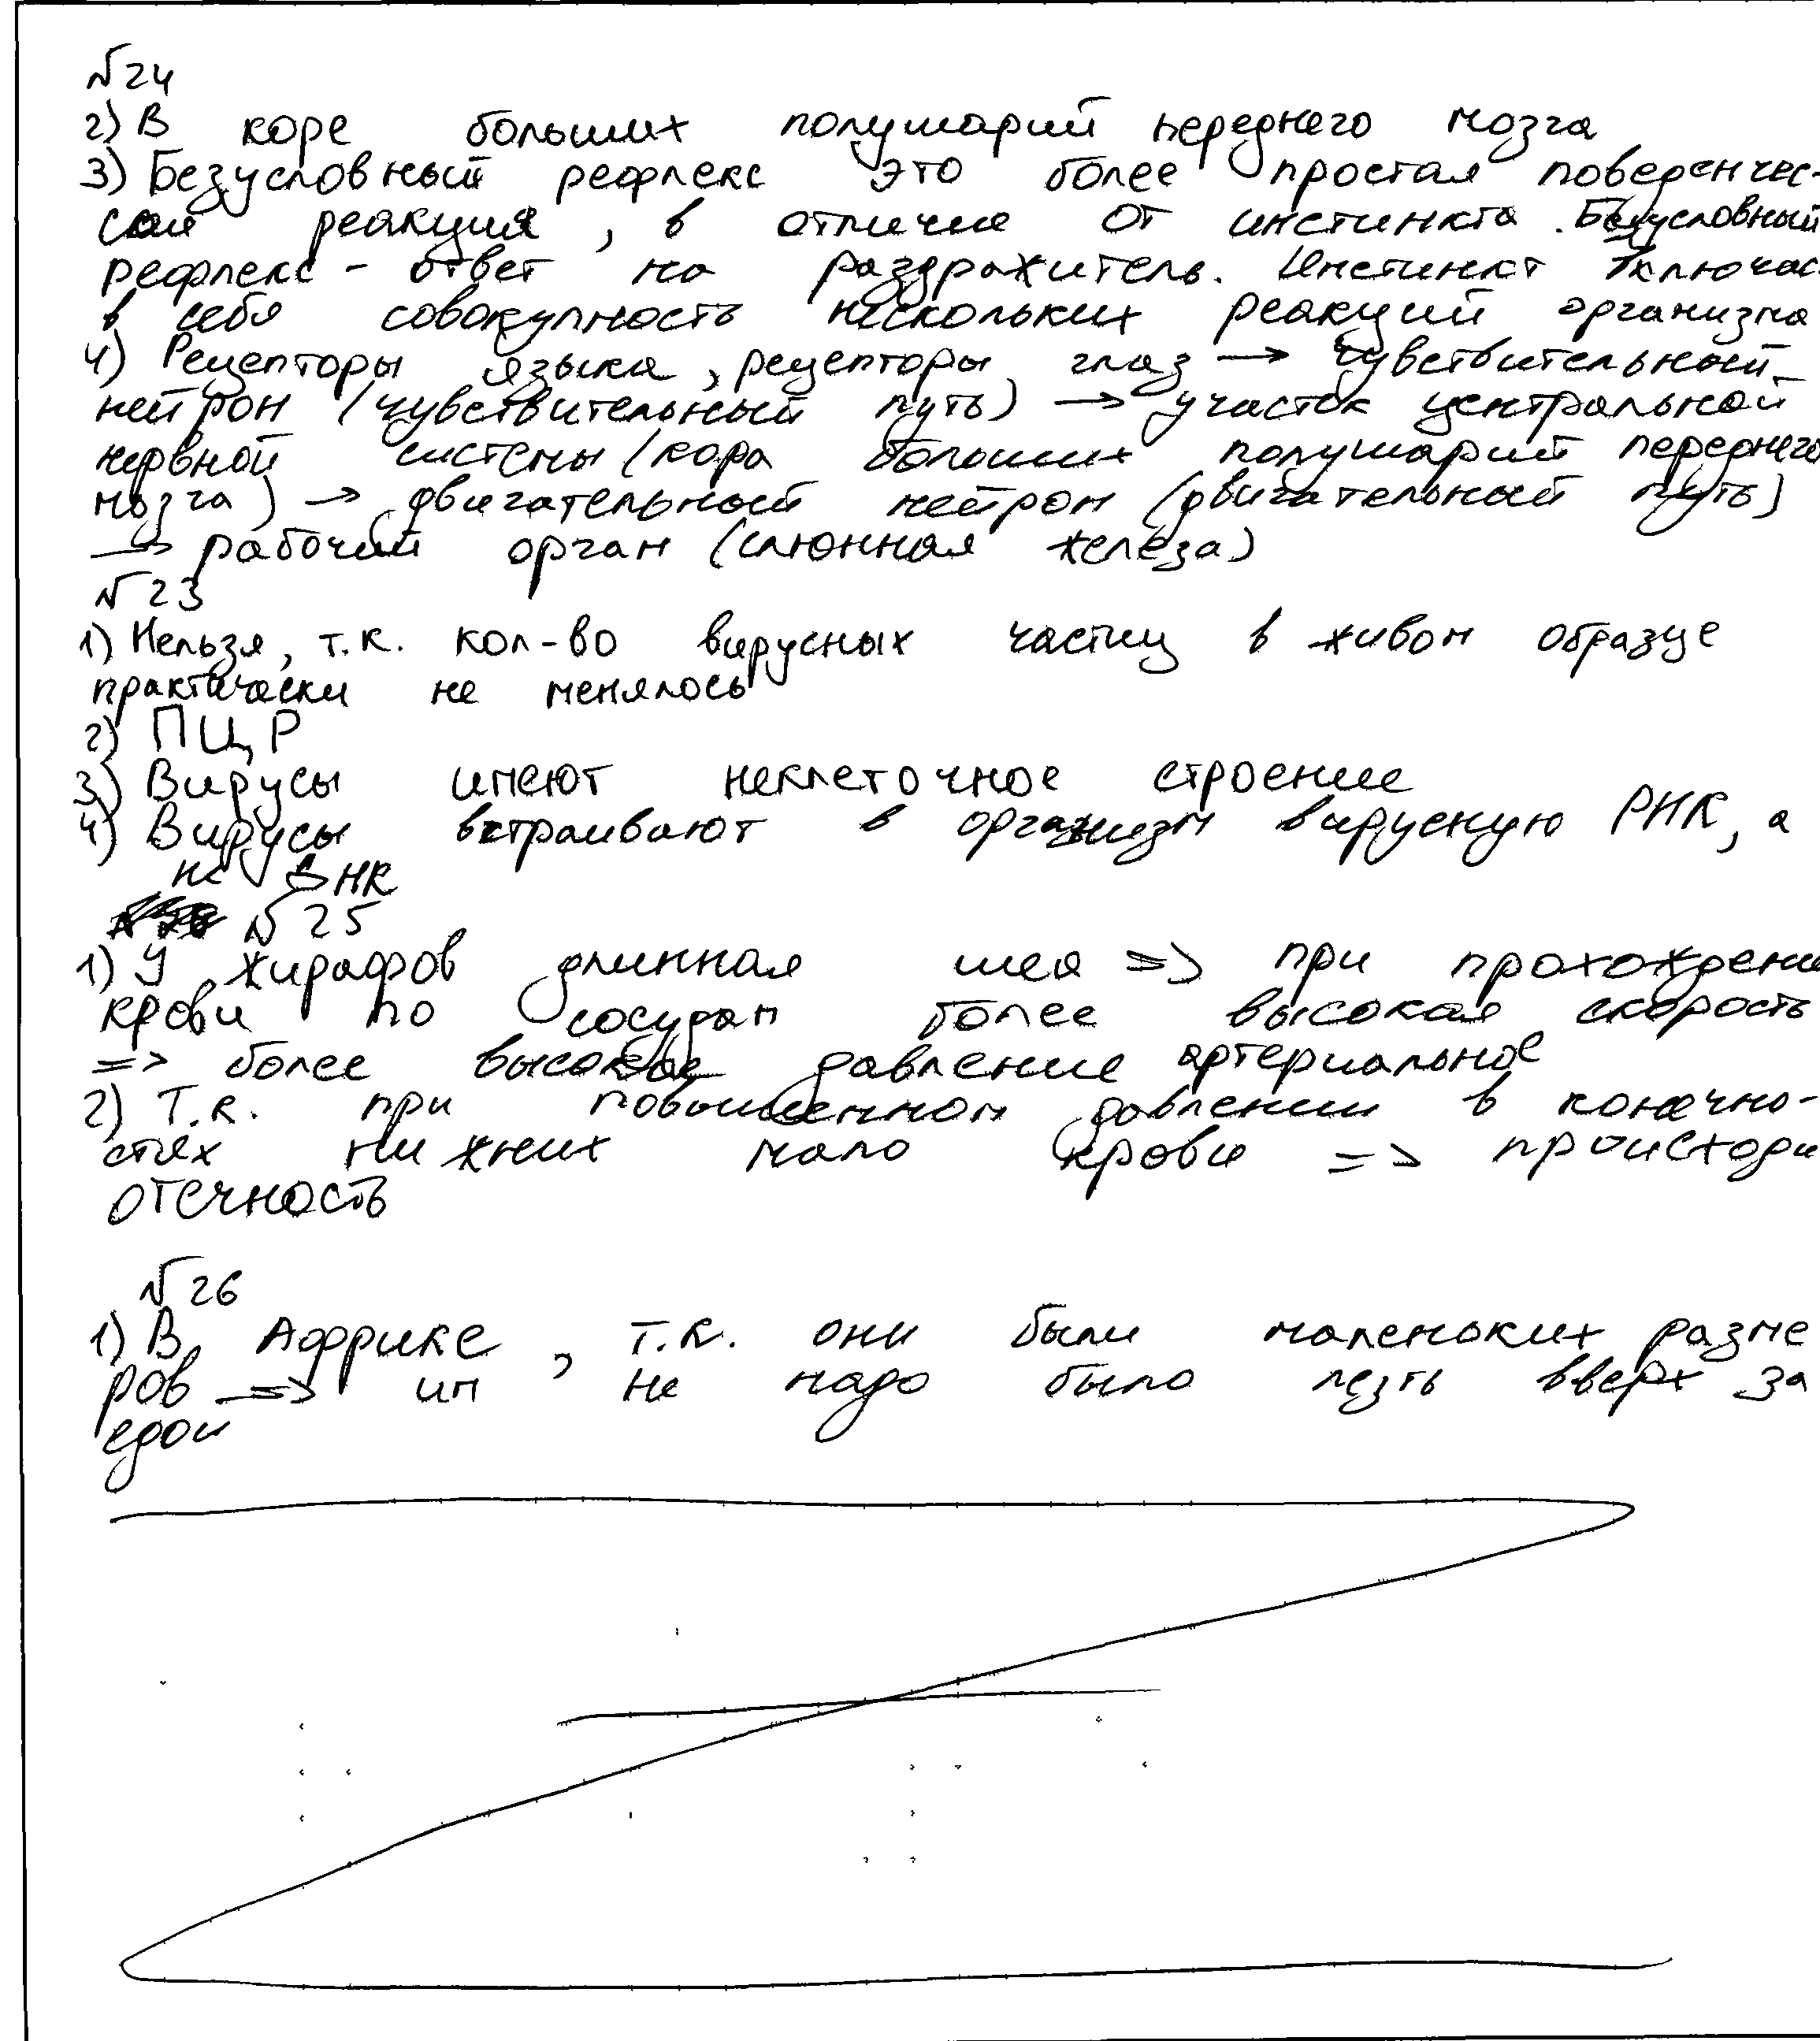 №24
2) В коре больших полушарий переднего мозга
3) Безусловный рефлекс это более простая поведенчес-
кая реакция, в отличие от инстинкта. Безусловный
рефлекс - ответ на раздражитель. Инстинкт включае
в себя совокупность нескольких реакций организма
4) Рецепторы языка, рецепторы глаз → чувствительный
нейрон (чувствительный путь) → участок центральной
нервной системы (кора больших полушарий переднего
мозга) → двигательный нейрон (двигательный путь)
→ рабочий орган (слюнная железа)
№23
1) Нельзя, т.к. кол-во вирусных частиц в живом образце
практически не менялось
2) ПЦР
3) Вирусы имеют неклеточное строение
4) Вирусы встраивают в организм вирусную РНК, а
не ДНК
№25
1) У жирафов длинная шея => при прохождени
крови по сосудам более высокая скорость
=> более высокое давление артериальное
2) Т.к. при повышенном давлении в конечно-
стях нижних мало крови => происходи
отечность
№26
1) В Африке, т.к. они были маленьких разме
ров => им не надо было лезть вверх за
едой